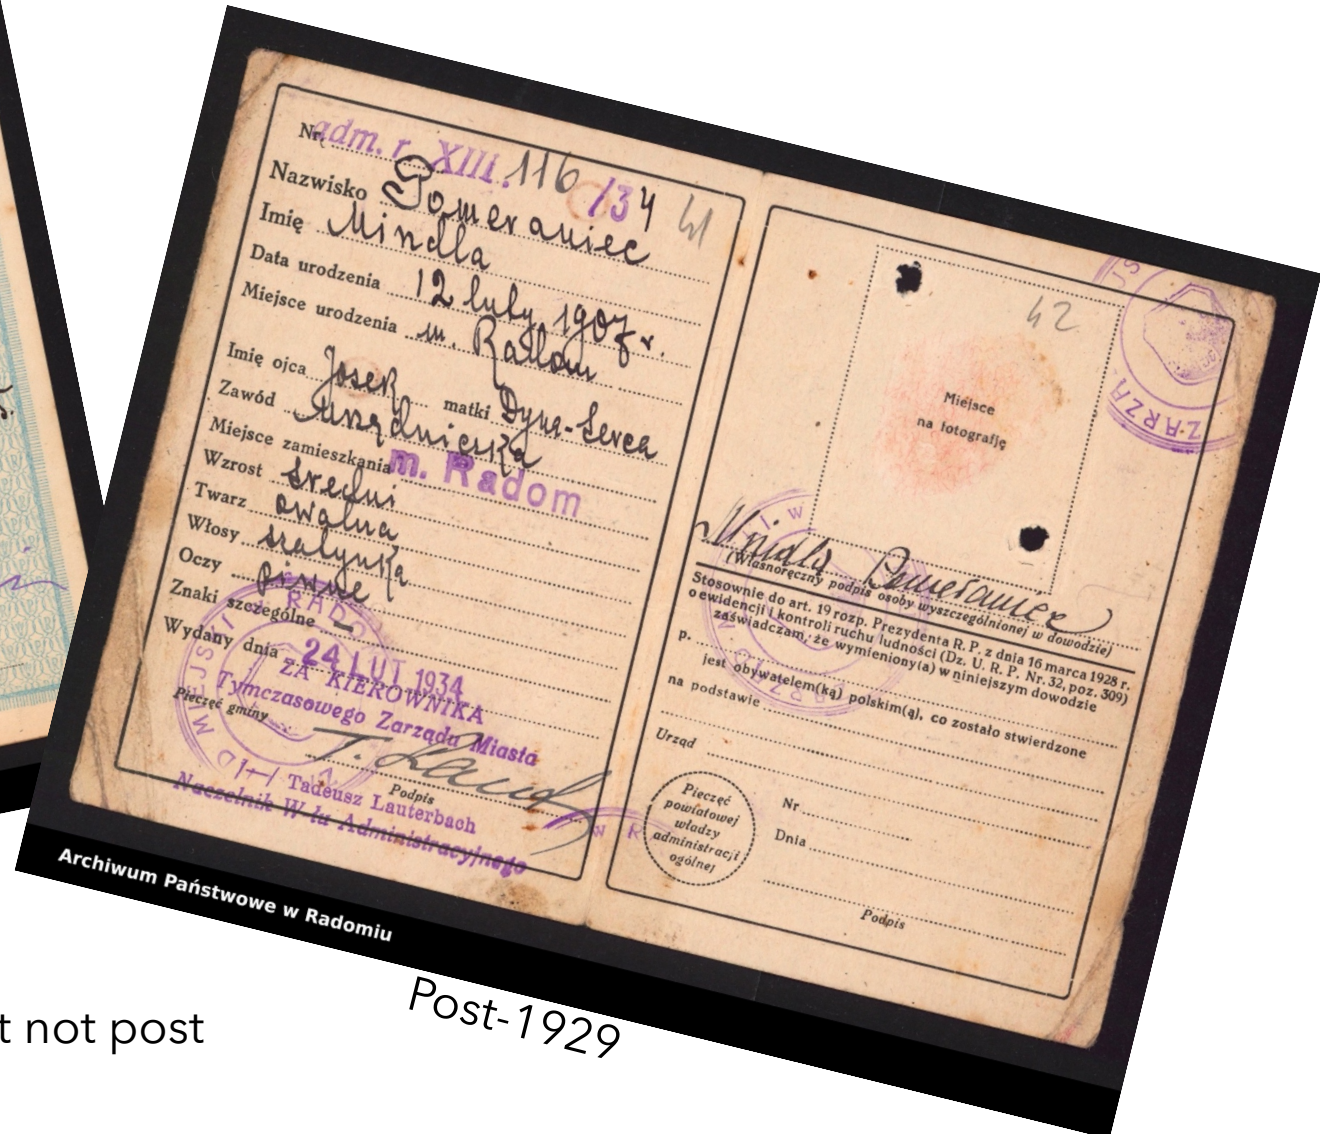 Nr. adm. r. XIII. 116 /34 41
Nazwisko Pomeraniec
Imię Mindla
Data urodzenia 12 luty 1907 r.
Miejsce urodzenia m. Radom
Imię ojca Josek matki Dyna-Serca
Zawód urzędniczka
Miejsce zamieszkania m. Radom
Wzrost średni
Twarz owalna
Włosy szatynka
Oczy piwne
Znaki szczególne –
Wydany dnia 24 LUT 1934
ZA KIEROWNIKA
Tymczasowego Zarządu Miasta
Pieczęć gminy
Podpis
Tadeusz Lauterbach
Naczelnik W-łu Administracyjnego
42
Miejsce
na fotografję
ZARZĄ
Mindla Pomeraniec
(Własnoręczny podpis osoby wyszczególnionej w dowodzie)
Stosownie do art. 19 rozp. Prezydenta R. P. z dnia 16 marca 1928 r.
o ewidencji i kontroli ruchu ludności (Dz. U. R. P. Nr. 32, poz. 309)
zaświadczam, że wymieniony(a) w niniejszym dowodzie
p.
jest obywatelem(ką) polskim(ą), co zostało stwierdzone
na podstawie
Urząd
Pieczęć
powiatowej
władzy
administracji
ogólnej
Nr
Dnia
Podpis
Archiwum Państwowe w Radomiu
t not post
Post-1929